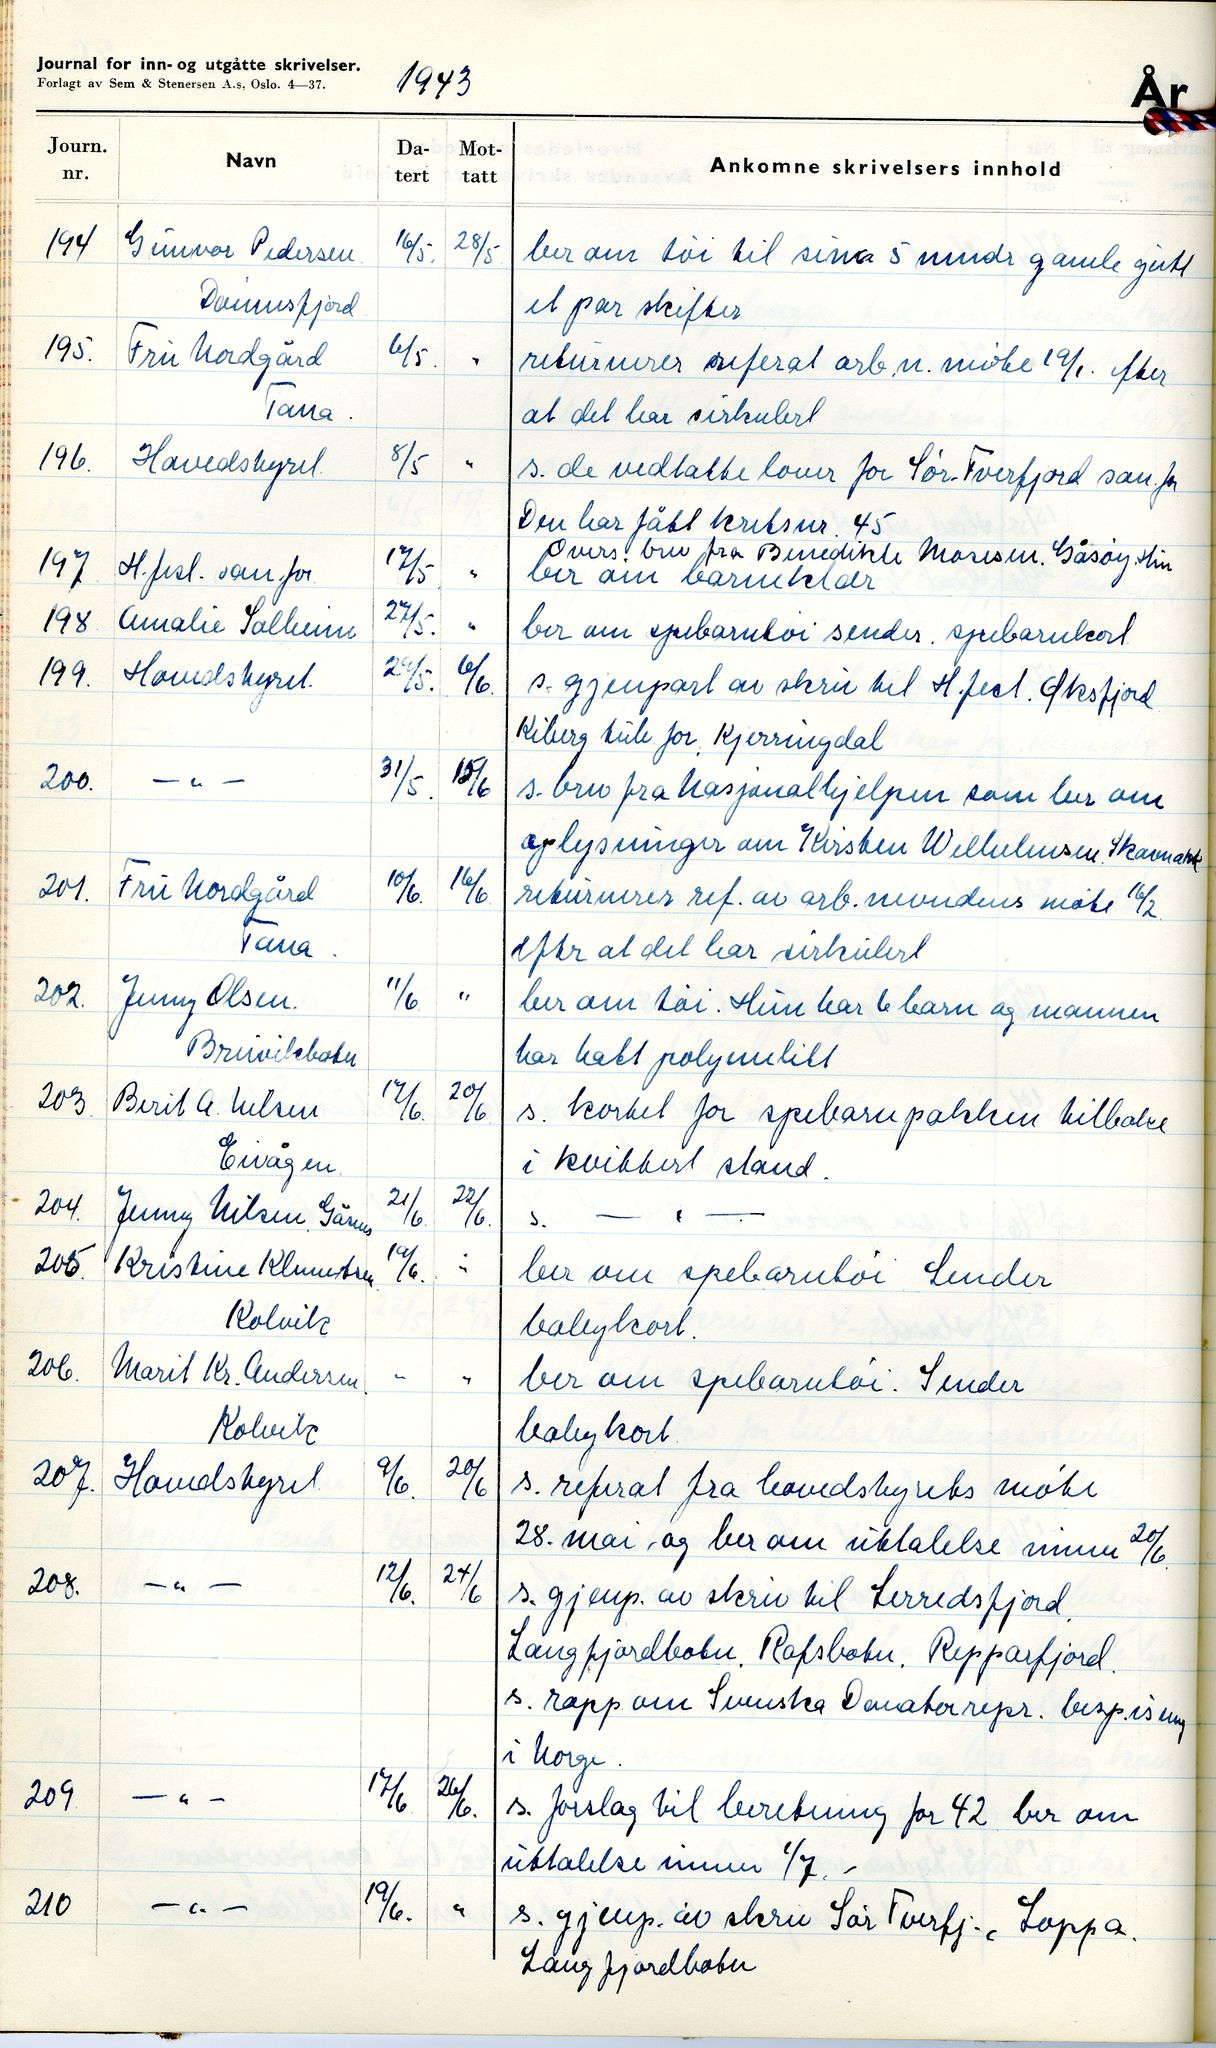 Journal for inn- og utgåtte skrivelser.
Forlagt av Sem & Stenersen A.s, Oslo. 4—37.
1943
År
Journ. nr. Navn Datert Mottatt Ankomne skrivelsers innhold
194 Gunvor Pedersen 16/5. 28/5 ber om tøi til sin 5 mndr gamle gutt
Dønnesfjord et par skifter
195. Fru Nordgård 6/5. " returnerer referat arb.n. møte 19/1. efter
Tana. at det har sirkulert
196. Hovedstyret 8/5 " s. de vedtatte lover for Sør-Tverfjord san.for
Den har fått kretsnr. 45
197 H.fest. san.for 17/5 " Overs. brev fra Benedikte Mosesen. Gåsøy. Hun
ber om barneklær
198 Amalie Solheim 27/5. " ber om spebarntøi sender. spebarnkort
199. Hovedstyret. 29/5. 6/6. s. gjenpart av skriv til H.fest. Øksfjord
Kiberg tub for. Kjerringdal
200. — " — 31/5. 15/6 s. brev fra Nasjonalhjelpen som ber om
oplysninger om Kirsten Wilhelmsen.
201. Fru Nordgård 10/6. 16/6 returnerer ref. av arb. nevndens møte 16/2
Tana. efter at det har sirkulert
202. Jenny Olsen. 11/6 " ber om tøi. Hun har 6 barn og mannen
Bruvikbotn har hatt polynevritt
203 Berit A. Nilsen 17/6. 20/6 s. kortet for spebarnpakken tilbake
Eivågen. i kvittert stand.
204. Jenny Nilsen, Gåsnes 21/6. 22/6. s. — " —
205. Kristine Klemetsen 19/6. " ber om spebarntøi Sender
Kolvik babykort.
206. Marit Kr. Andersen. " " ber om spebarntøi. Sender
Kolvik babykort
207. Hovedstyret 9/6. 20/6 s. referat fra hovedstyrets møte
28. mai, og ber om uttalelse innen 20/6.
208. — " — 12/6. 24/6 s. gjenp. av skriv til Lerredsfjord,
Langfjordbotn, Rafsbotn, Repparfjord.
s. rapp om Svenska Donatorrepr. bespisning
i Norge.
209 — " — 17/6 26/6. s. forslag til beretning for 42 ber om
uttalelse innen 1/7. -
210 — " — 19/6. " s. gjenp. av skriv Sør Tverfj., Loppa.
Langfjordbotn